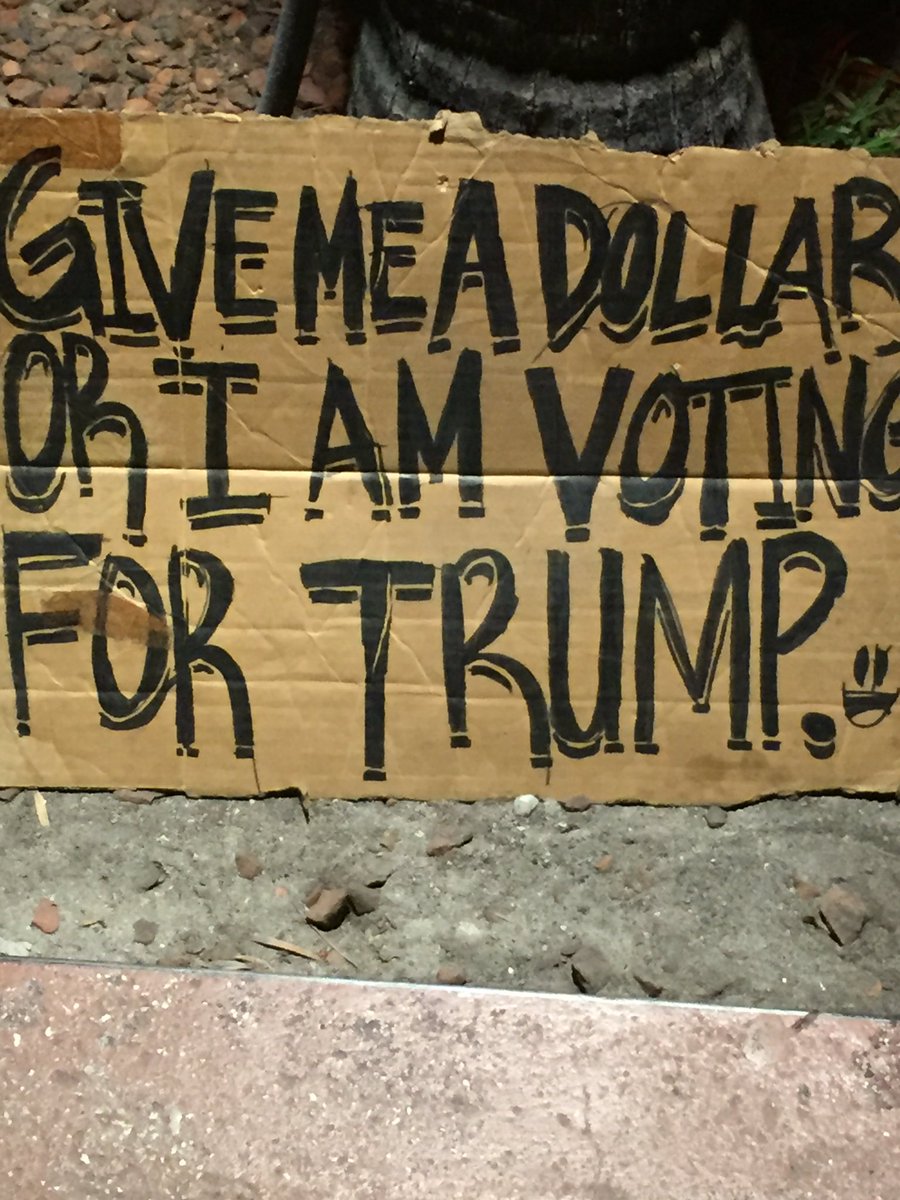 GIVE ME A DOLLAR
OR I AM VOTING
FOR TRUMP.